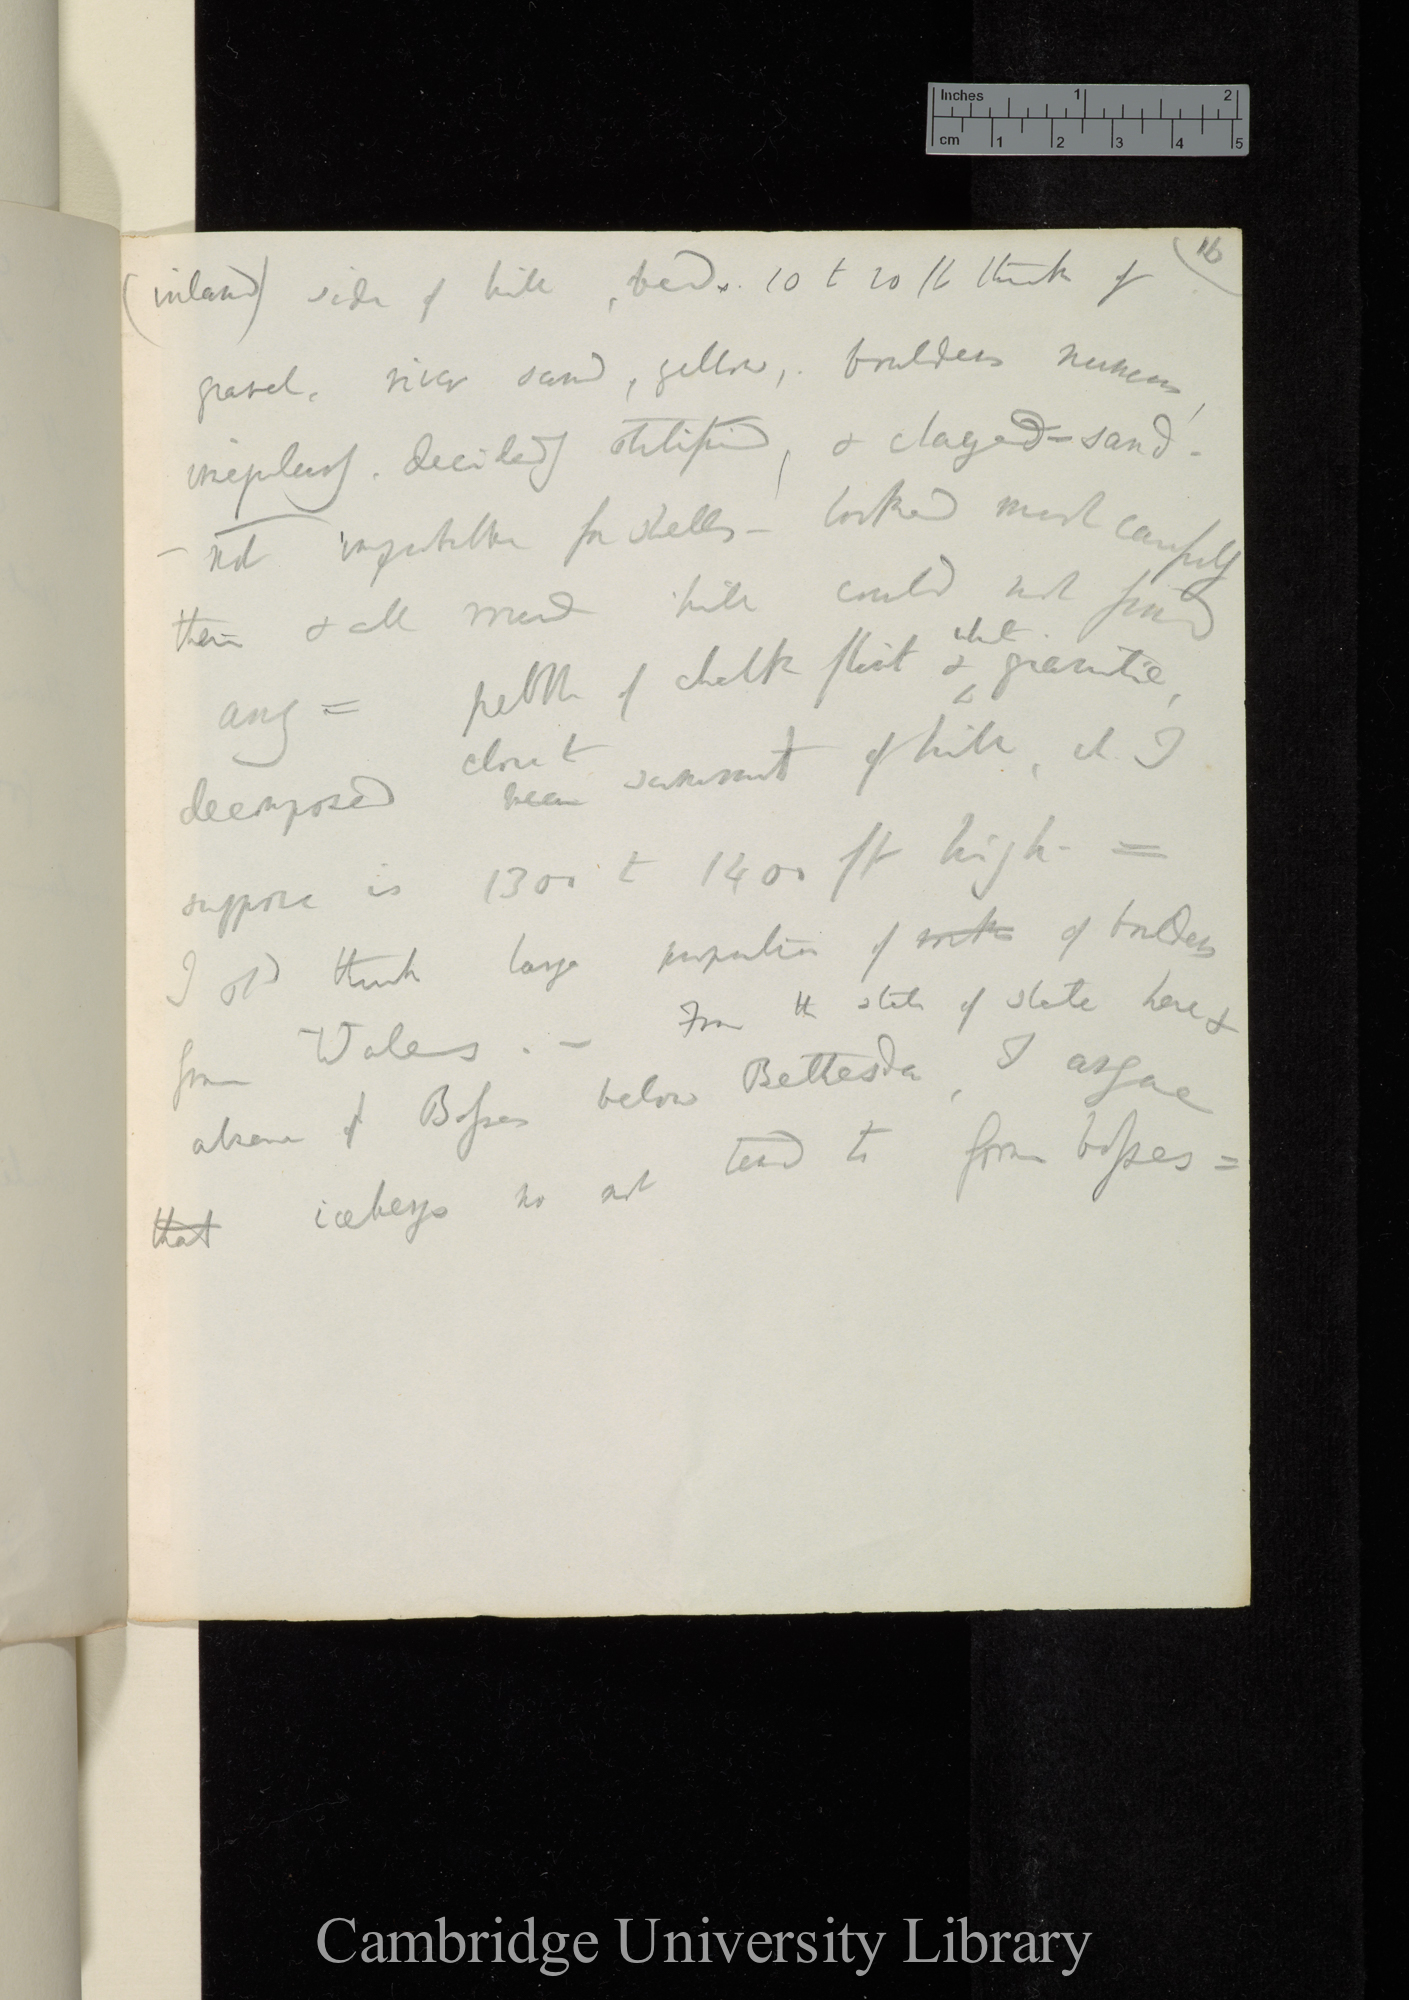 Inches 1 2
cm 1 2 3 4 5
16
(inland) side of hill, beds. 10 t 20 ft thick of
gravel. river sand, yellow, boulders numerous,
irregularly. decidedly stratified, & clayed = sand -
- not for shells - looked most carefully
there & all round hill could not find
any = pebble of chalk flint & granitic,
decomposed close t summit of hill, I
suppose is 1300 t 1400 ft high - =
I shd think large proportion of rocks of boulders
from Wales. - From th state of slate here &
absence of Bosses below Bethesda, I argue
that icebergs do not tend to form bosses =
Cambridge University Library